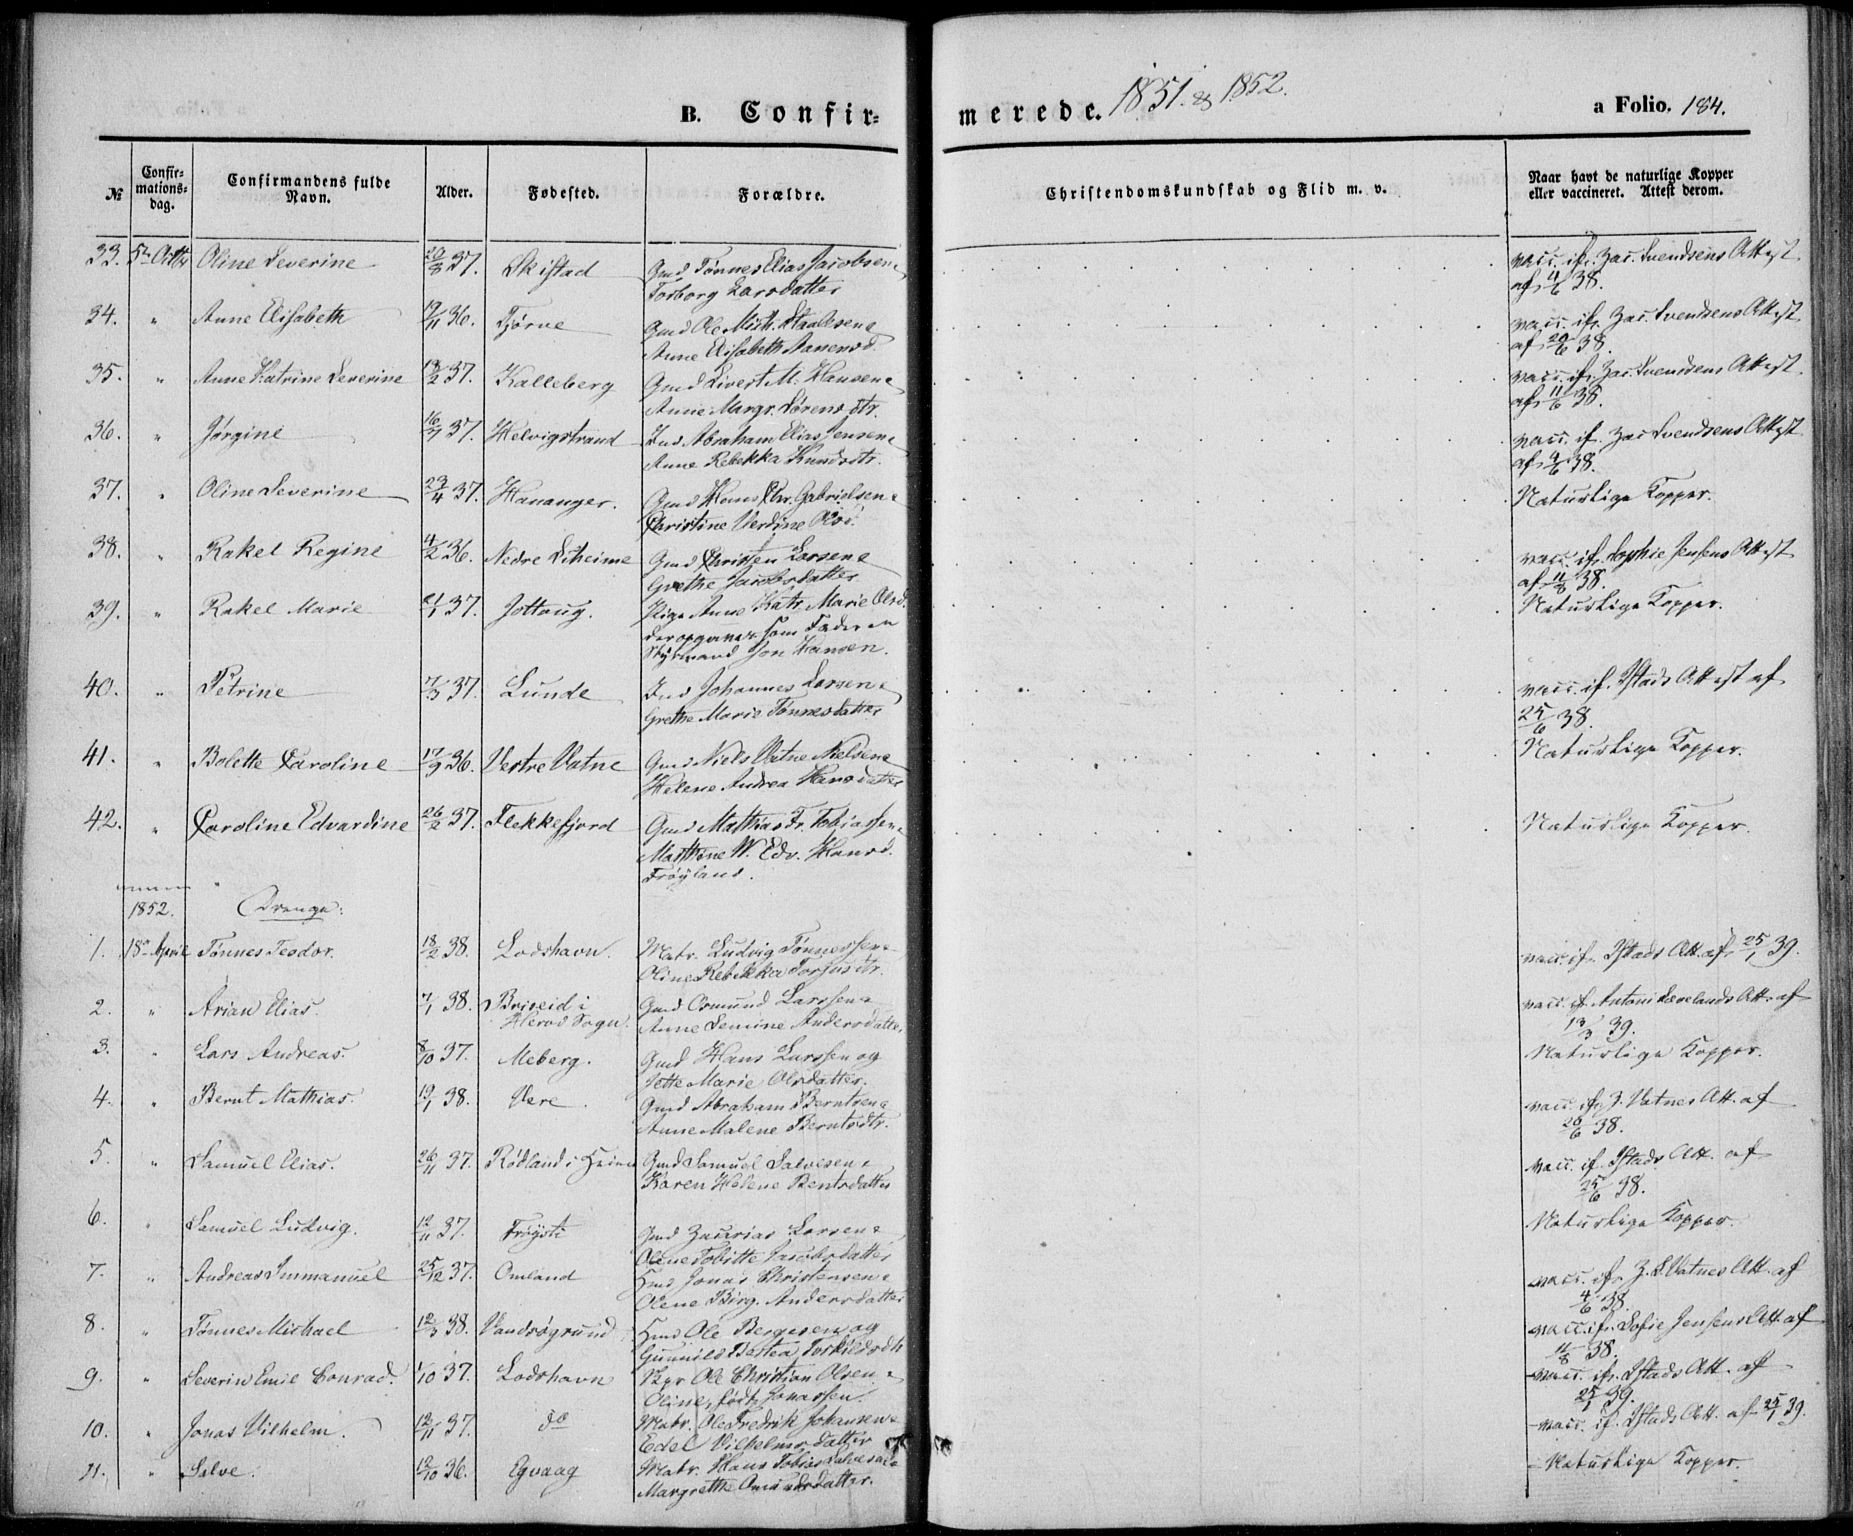 B. Confir-
merede. 1851. & 1852.
a Folio. 184.
№
Confir-
mations-
dag.
Confirmandens fulde
Navn.
Alder.
Fødested.
Forældre.
Christendomskundskab og Flid m. v.
Naar havt de naturlige Kopper
eller vaccineret. Attest derom.
33. 5te Octbr Oline Severine 20/8 37. Skistad Gmd Tønnes Elias Jacobsen &
Torborg Larsdatter
vacc. if. Zac. Svendsens Attest
af 11/6 38.
34. " Anne Elisabeth 19/11 36. Tjørve Gmd Ole Mich. Staalesen &
Anne Elisabeth Aanensd.
vacc. if. Zac. Svendsens Attest
af 20/6 38.
35. " Anne Katrine Severine 19/2 37. Kalleberg Gmd Sivert M. Hansen &
Anne Margr. Sørens dtr.
vacc. if. Zac. Svendsens Attest
af 11/6 38.
36. " Jørgine 16/7 37. Helvigstrand Ind Abraham Elias Jensen &
Anne Rebekka Knudsdtr.
vacc. if. Zac Svendsens Attest
af 9/6 38.
37. " Oline Severine 29/4 37. Hananger. Gmd Hans Chr. Gabrielsen &
Christine Verdine Olsd.
Naturlige Kopper.
38. " Rakel Regine 4/2 36. Nedre Eiheime Gmd Christen Larsen &
Grethe Jacobsdatter
vacc. if. Sophie Jensens Attest
af 11/8 38.
39. " Rakel Marie 21/1 37. Jottaug. Pige Anne Katr. Marie Olsd.
der opgiver som Faderen
Styrmand Jon Hansen.
Naturlige Kopper.
40. " Petrine 7/3 37. Lunde Ind Johannes Larsen &
Grethe Marie Tønnesdatter
vacc. if. Ystads Attest af
25/6 38.
41. " Bolette Caroline 17/9 36. Vestre Vatne Gmd Niels Vatne Nielsen &
Helene Andrea Hansdatter
Naturlige Kopper.
42. " Caroline Edvardine 26/2 37. Flekkefjord Gmd Mathias Fr. Tobiassen &
Marthine W. Edv. Hansd.
Frøyland.
Naturlige Kopper.
1852. Drenge:
1. 18de April Tønnes Teodor. 18/2 38. Lodshavn. Matr. Ludvig Tønnessen &
Oline Rebekka Torjusdtr.
vacc. if. Ystads Att. af 25/1 39.
2. " Arian Elias. 7/1 38. Briseid i
Herod Sogn. Gmd Osmund Larssen &
Anne Semine Andersdatter
vacc. if. Antoni Lævelands Att. af
13/3 39.
3. " Lars Andreas. 8/10 37. Meberg. Gmd Hans Larssen og
Jette Marie Olsdatter.
Naturlige Kopper.
4. " Bernt Mathias. 19/1 38. Vere. Gmd Abraham Berntsen &
Anne Malene Berntsdtr.
vacc. if. Z. Vatnes Att. af
20/6 38.
5. " Samuel Elias. 26/11 37. Rødland i Heien Gmd Samuel Salvesen &
Karen Helene Bentsdatter
vacc. if. Ystads Att. af
25/6 38.
6. " Samuel Ludvig. 12/11 37. Frøysti Gmd Zacarias Larsen &
Olene Tobitte Jacobsdatter
Naturlige Kopper.
7. " Andreas Immanuel 25/12 37. Omland Hmd Jonas Christensen &
Olene Birg. Andersdatter
vacc. if. Z. S. Vatnes Att. af
4/6 38.
8. " Tønnes Michael 12/3 38. Vandsøgrund Hmd Ole Bergesen og
Gunnild Bertea Torkildsdtr
vacc. if. Sofie Jensens Att. af
11/8 38.
9. " Severin Emil Conrad. 1/10 37. Lodshavn Kpr Ole Christian Olsen &
Oline, født Jonassen.
vacc. if. Ystads Att. af
25/1 39.
10. " Jonas Vilhelm. 12/11 37. do Matr. Ole Fredrik Johansen &
Edel Vilhelmsdatter
vacc. if. Ystads Att. af 25/1 39.
11. " Salve. 12/10 36. Egvaag Matr. Hans Tobias Salvesen &
Margrethe Omundsdatter.
Naturlige Kopper.